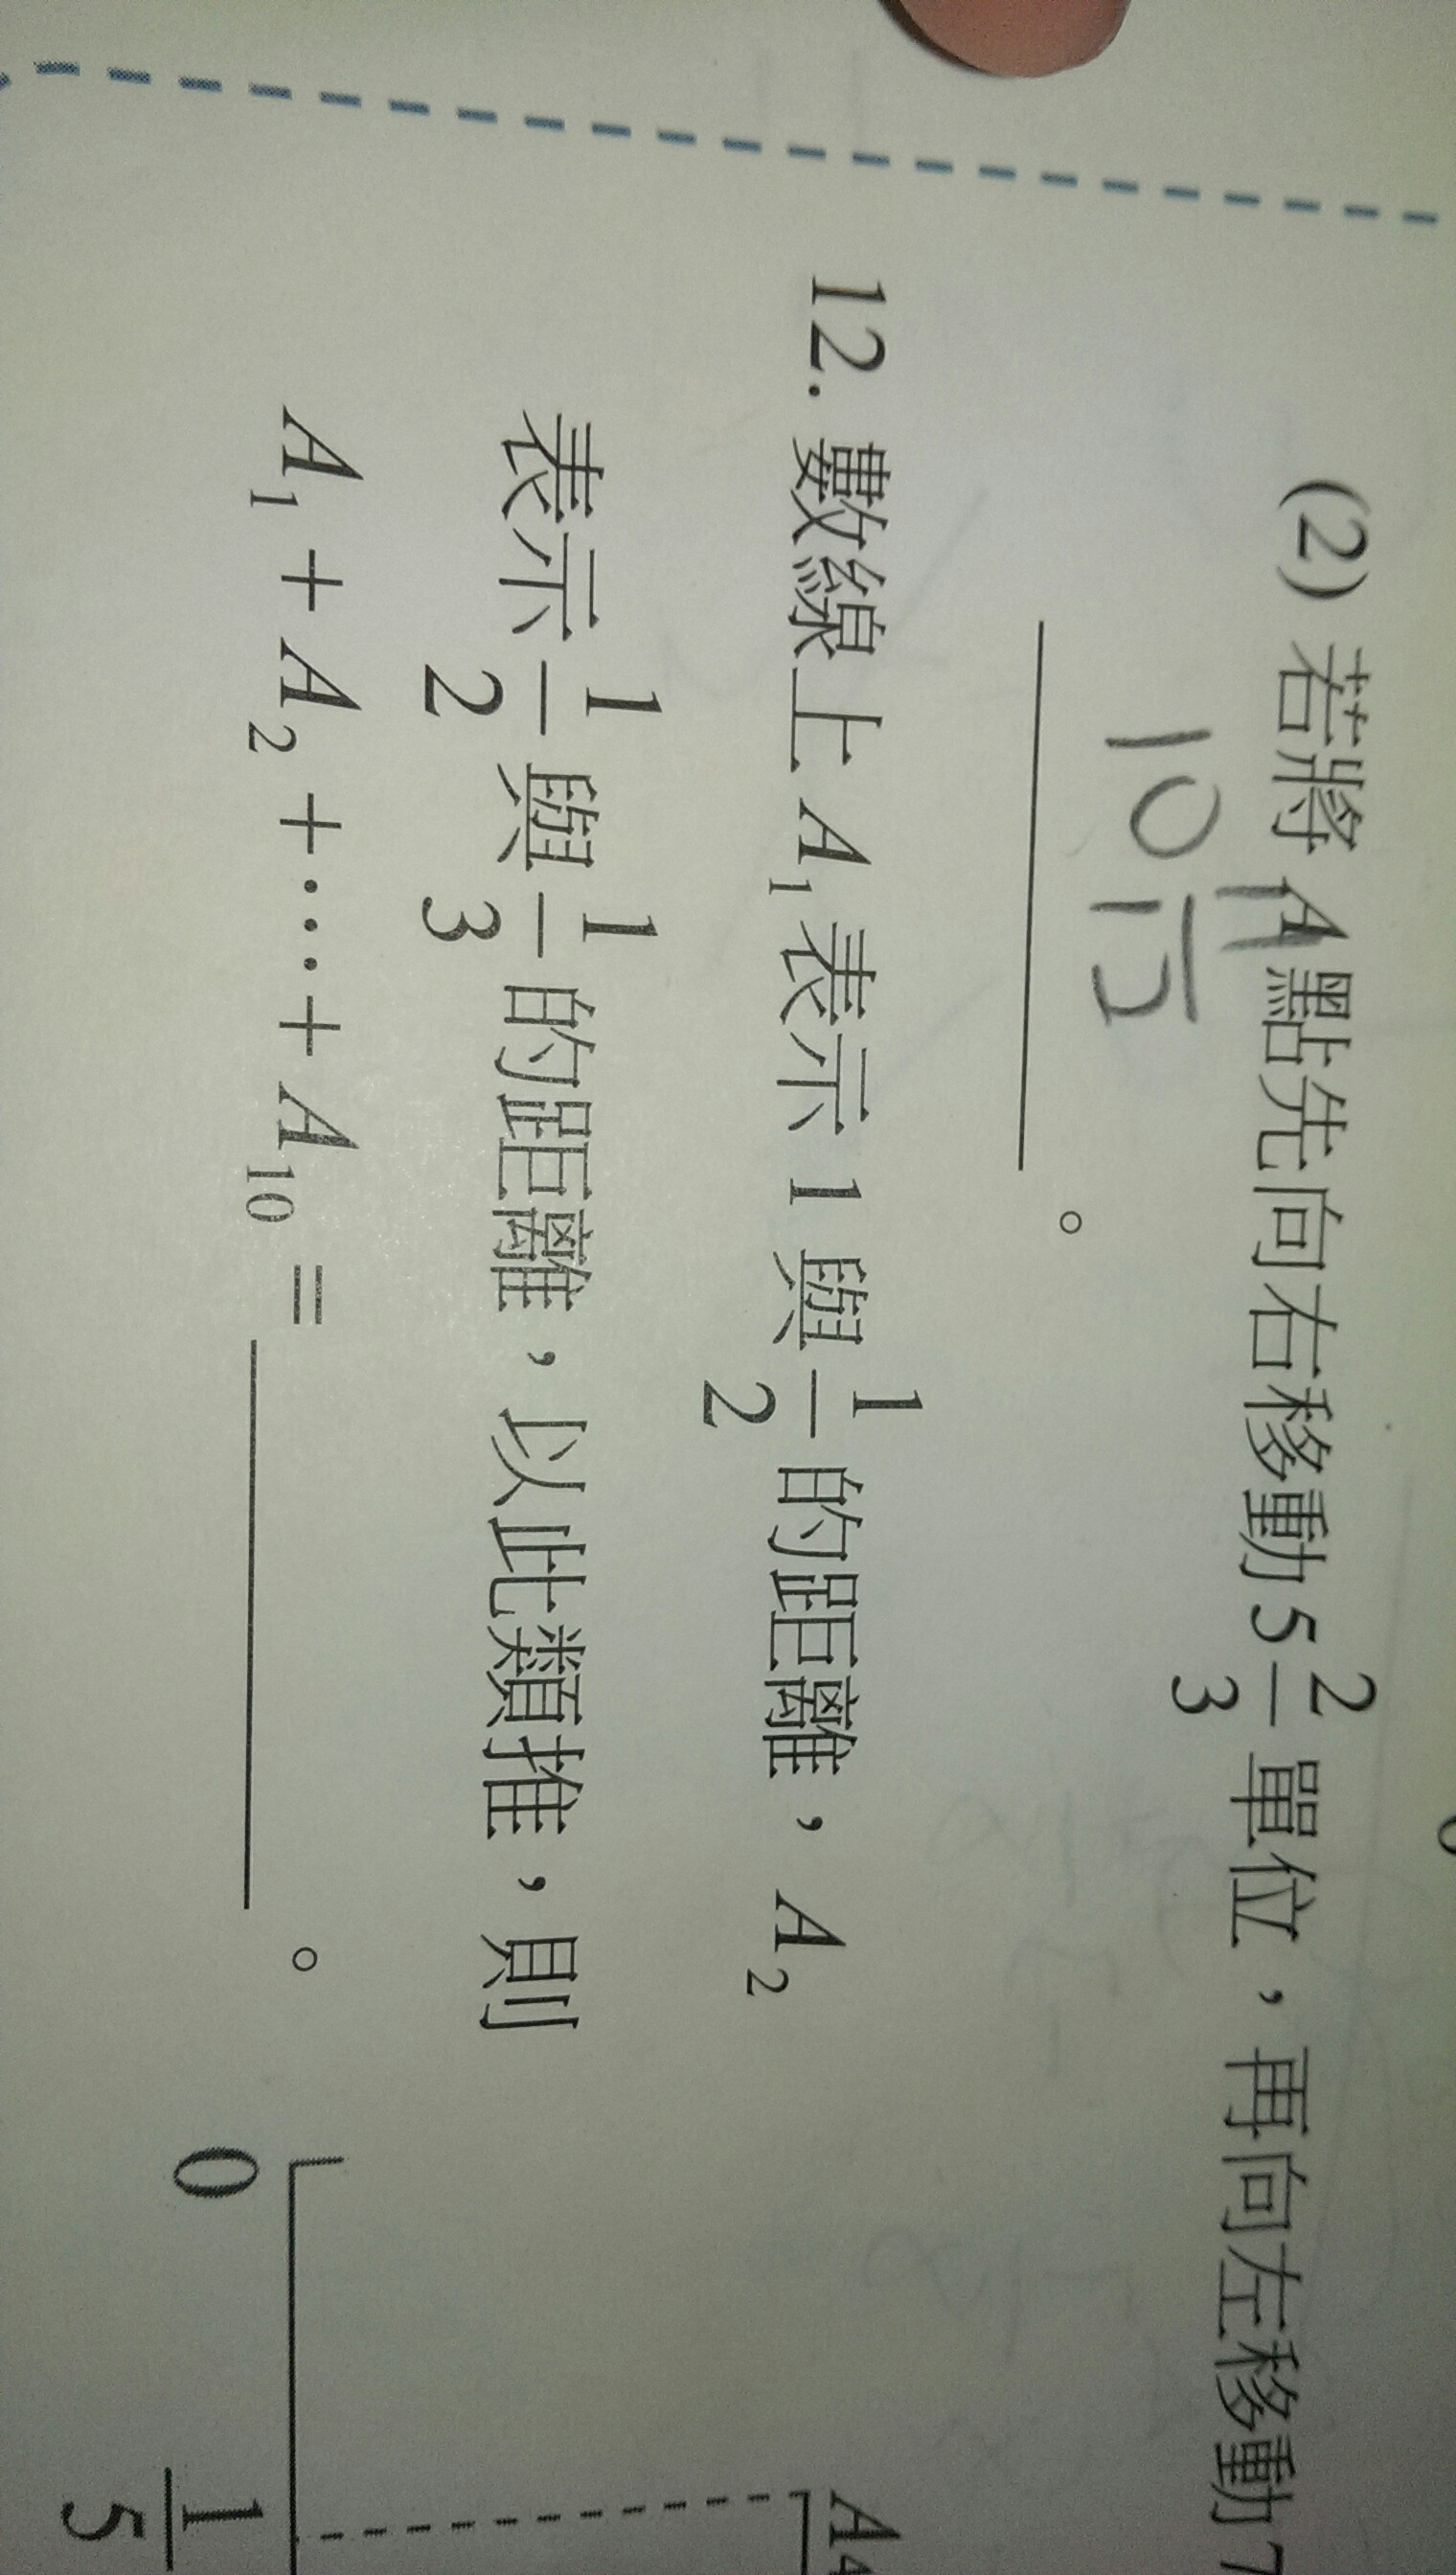 (2) 若將 A 點先向右移動 5 2/3 單位，再向左移動 7
10
。
12. 數線上 A₁ 表示 1 與 1/2 的距離，A₂
表示 1/2 與 1/3 的距離，以此類推，則
A₁ + A₂ + ⋯ + A₁₀ = ＿＿＿＿＿。
A₄
0 1/5